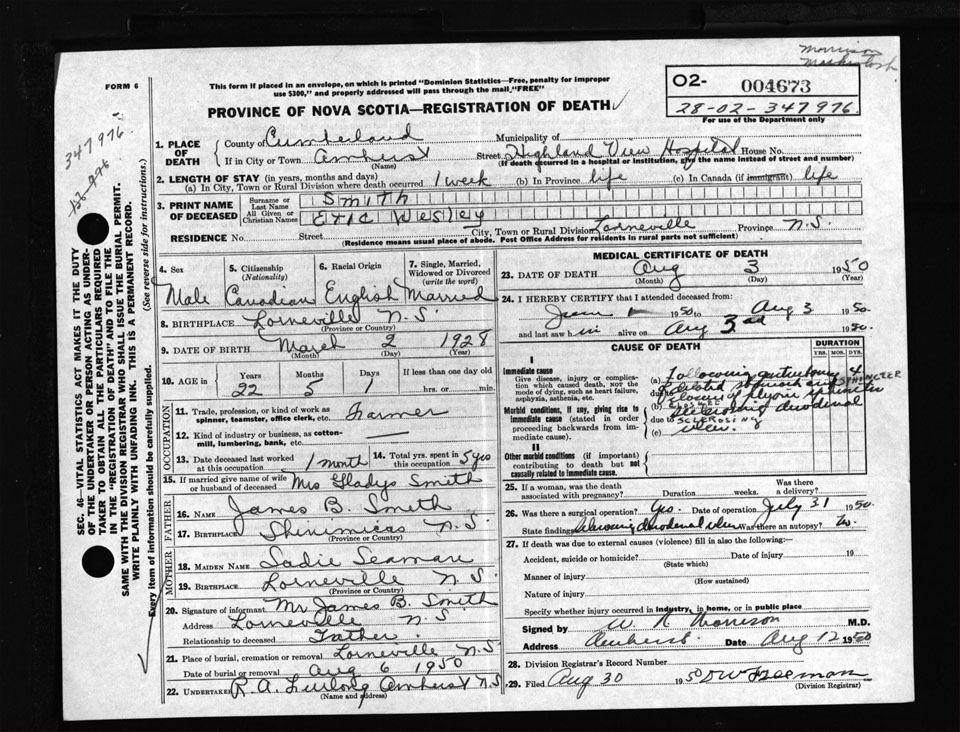 Morrison
FORM 6
This form if placed in an envelope, on which is printed "Dominion Statistics—Free, penalty for improper
use $300," and properly addressed will pass through the mail "FREE"
PROVINCE OF NOVA SCOTIA—REGISTRATION OF DEATH
O2- 004673
28-02-347976
For use of the Department only
347976
SEC. 46—VITAL STATISTICS ACT MAKES IT THE DUTY
OF THE UNDERTAKER OR PERSON ACTING AS UNDER-
TAKER TO OBTAIN ALL THE PARTICULARS REQUIRED
IN THE "REGISTRATION OF DEATH" AND TO FILE THE
SAME WITH THE DIVISION REGISTRAR WHO SHALL ISSUE THE BURIAL PERMIT.
WRITE PLAINLY WITH UNFADING INK. THIS IS A PERMANENT RECORD.
Every item of information should be carefully supplied. (See reverse side for instructions.)
1. PLACE OF DEATH County of Cumberland Municipality of
If in City or Town Amherst Street Highland View Hospital House No.
(If death occurred in a hospital or institution, give the name instead of street and number)
2. LENGTH OF STAY (in years, months and days)
(a) In City, Town or Rural Division where death occurred 1 week (b) In Province life (c) In Canada (if immigrant) life
3. PRINT NAME OF DECEASED Surname or Last Name Smith
All Given or Christian Names Eric Wesley
RESIDENCE No. Street City, Town or Rural Division Lorneville Province N.S.
(Residence means usual place of abode. Post Office Address for residents in rural parts not sufficient)
4. Sex 5. Citizenship (Nationality) 6. Racial Origin 7. Single, Married, Widowed or Divorced (write the word)
Male Canadian English Married
8. BIRTHPLACE Lorneville N.S.
(Province or Country)
9. DATE OF BIRTH March 2 1928
(Month) (Day) (Year)
10. AGE in Years Months Days If less than one day old
22 5 1 hrs. or min.
OCCUPATION
11. Trade, profession, or kind of work as
spinner, teamster, office clerk, etc. Farmer
12. Kind of industry or business, as cotton-
mill, lumbering, bank, etc. —
13. Date deceased last worked at this occupation 1 month 14. Total yrs. spent in this occupation 5 yrs
15. If married give name of wife or husband of deceased Mrs Gladys Smith
FATHER
16. NAME James B. Smith
17. BIRTHPLACE Shinimicas N.S.
(Province or Country)
MOTHER
18. MAIDEN NAME Sadie Seaman
19. BIRTHPLACE Lorneville N.S.
(Province or Country)
20. Signature of informant Mr James B. Smith
Address Lorneville N.S.
Relationship to deceased Father
21. Place of burial, cremation or removal Lorneville N.S.
Date of burial or removal Aug 6 1950
22. UNDERTAKER R.A. Furlong Amherst N.S.
(Name and address)
MEDICAL CERTIFICATE OF DEATH
23. DATE OF DEATH Aug 3 1950
(Month) (Day) (Year)
24. I HEREBY CERTIFY that I attended deceased from:
June 1 1950 to Aug 3 1950
and last saw him alive on Aug 3rd 1950.
CAUSE OF DEATH
DURATION
YRS. MOS. DYS.
I
Immediate cause
Give disease, injury or complication which caused death, NOT the mode of dying, such as heart failure, asphyxia, asthenia, etc.
(a) Following 4
due to
Morbid conditions, if any, giving rise to immediate cause (stated in order proceeding backwards from immediate cause).
(b) duodenal
due to SCLEROSING
(c) ulcer.
II
Other morbid conditions (if important) contributing to death but not causally related to immediate cause.
25. If a woman, was the death associated with pregnancy? Duration weeks. Was there a delivery?
26. Was there a surgical operation? Yes. Date of operation July 31 1950
State findings Sclerosing duodenal ulcer Was there an autopsy? No.
27. If death was due to external causes (violence) fill in also the following:—
Accident, suicide or homicide? Date of injury 19
(State which)
Manner of injury
(How sustained)
Nature of injury
Specify whether injury occurred in industry, in home, or in public place
Signed by W. R. Morrison M.D.
Address Amherst Date Aug 12 1950
28. Division Registrar's Record Number
29. Filed Aug 30 1950 DW Freeman
(Division Registrar)